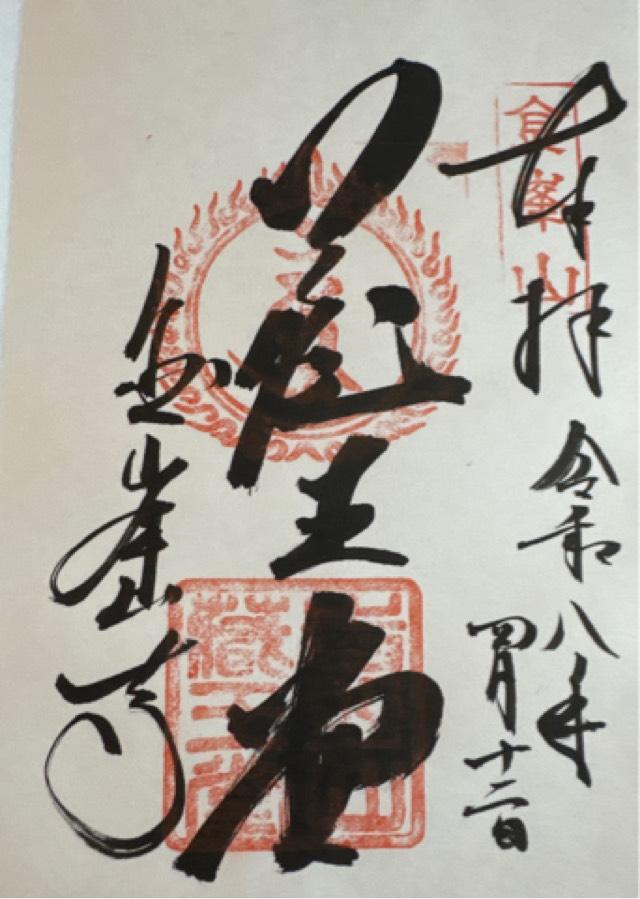 金峯山
奉拝
令和八年
四月十二日
蔵王堂
金峯山寺